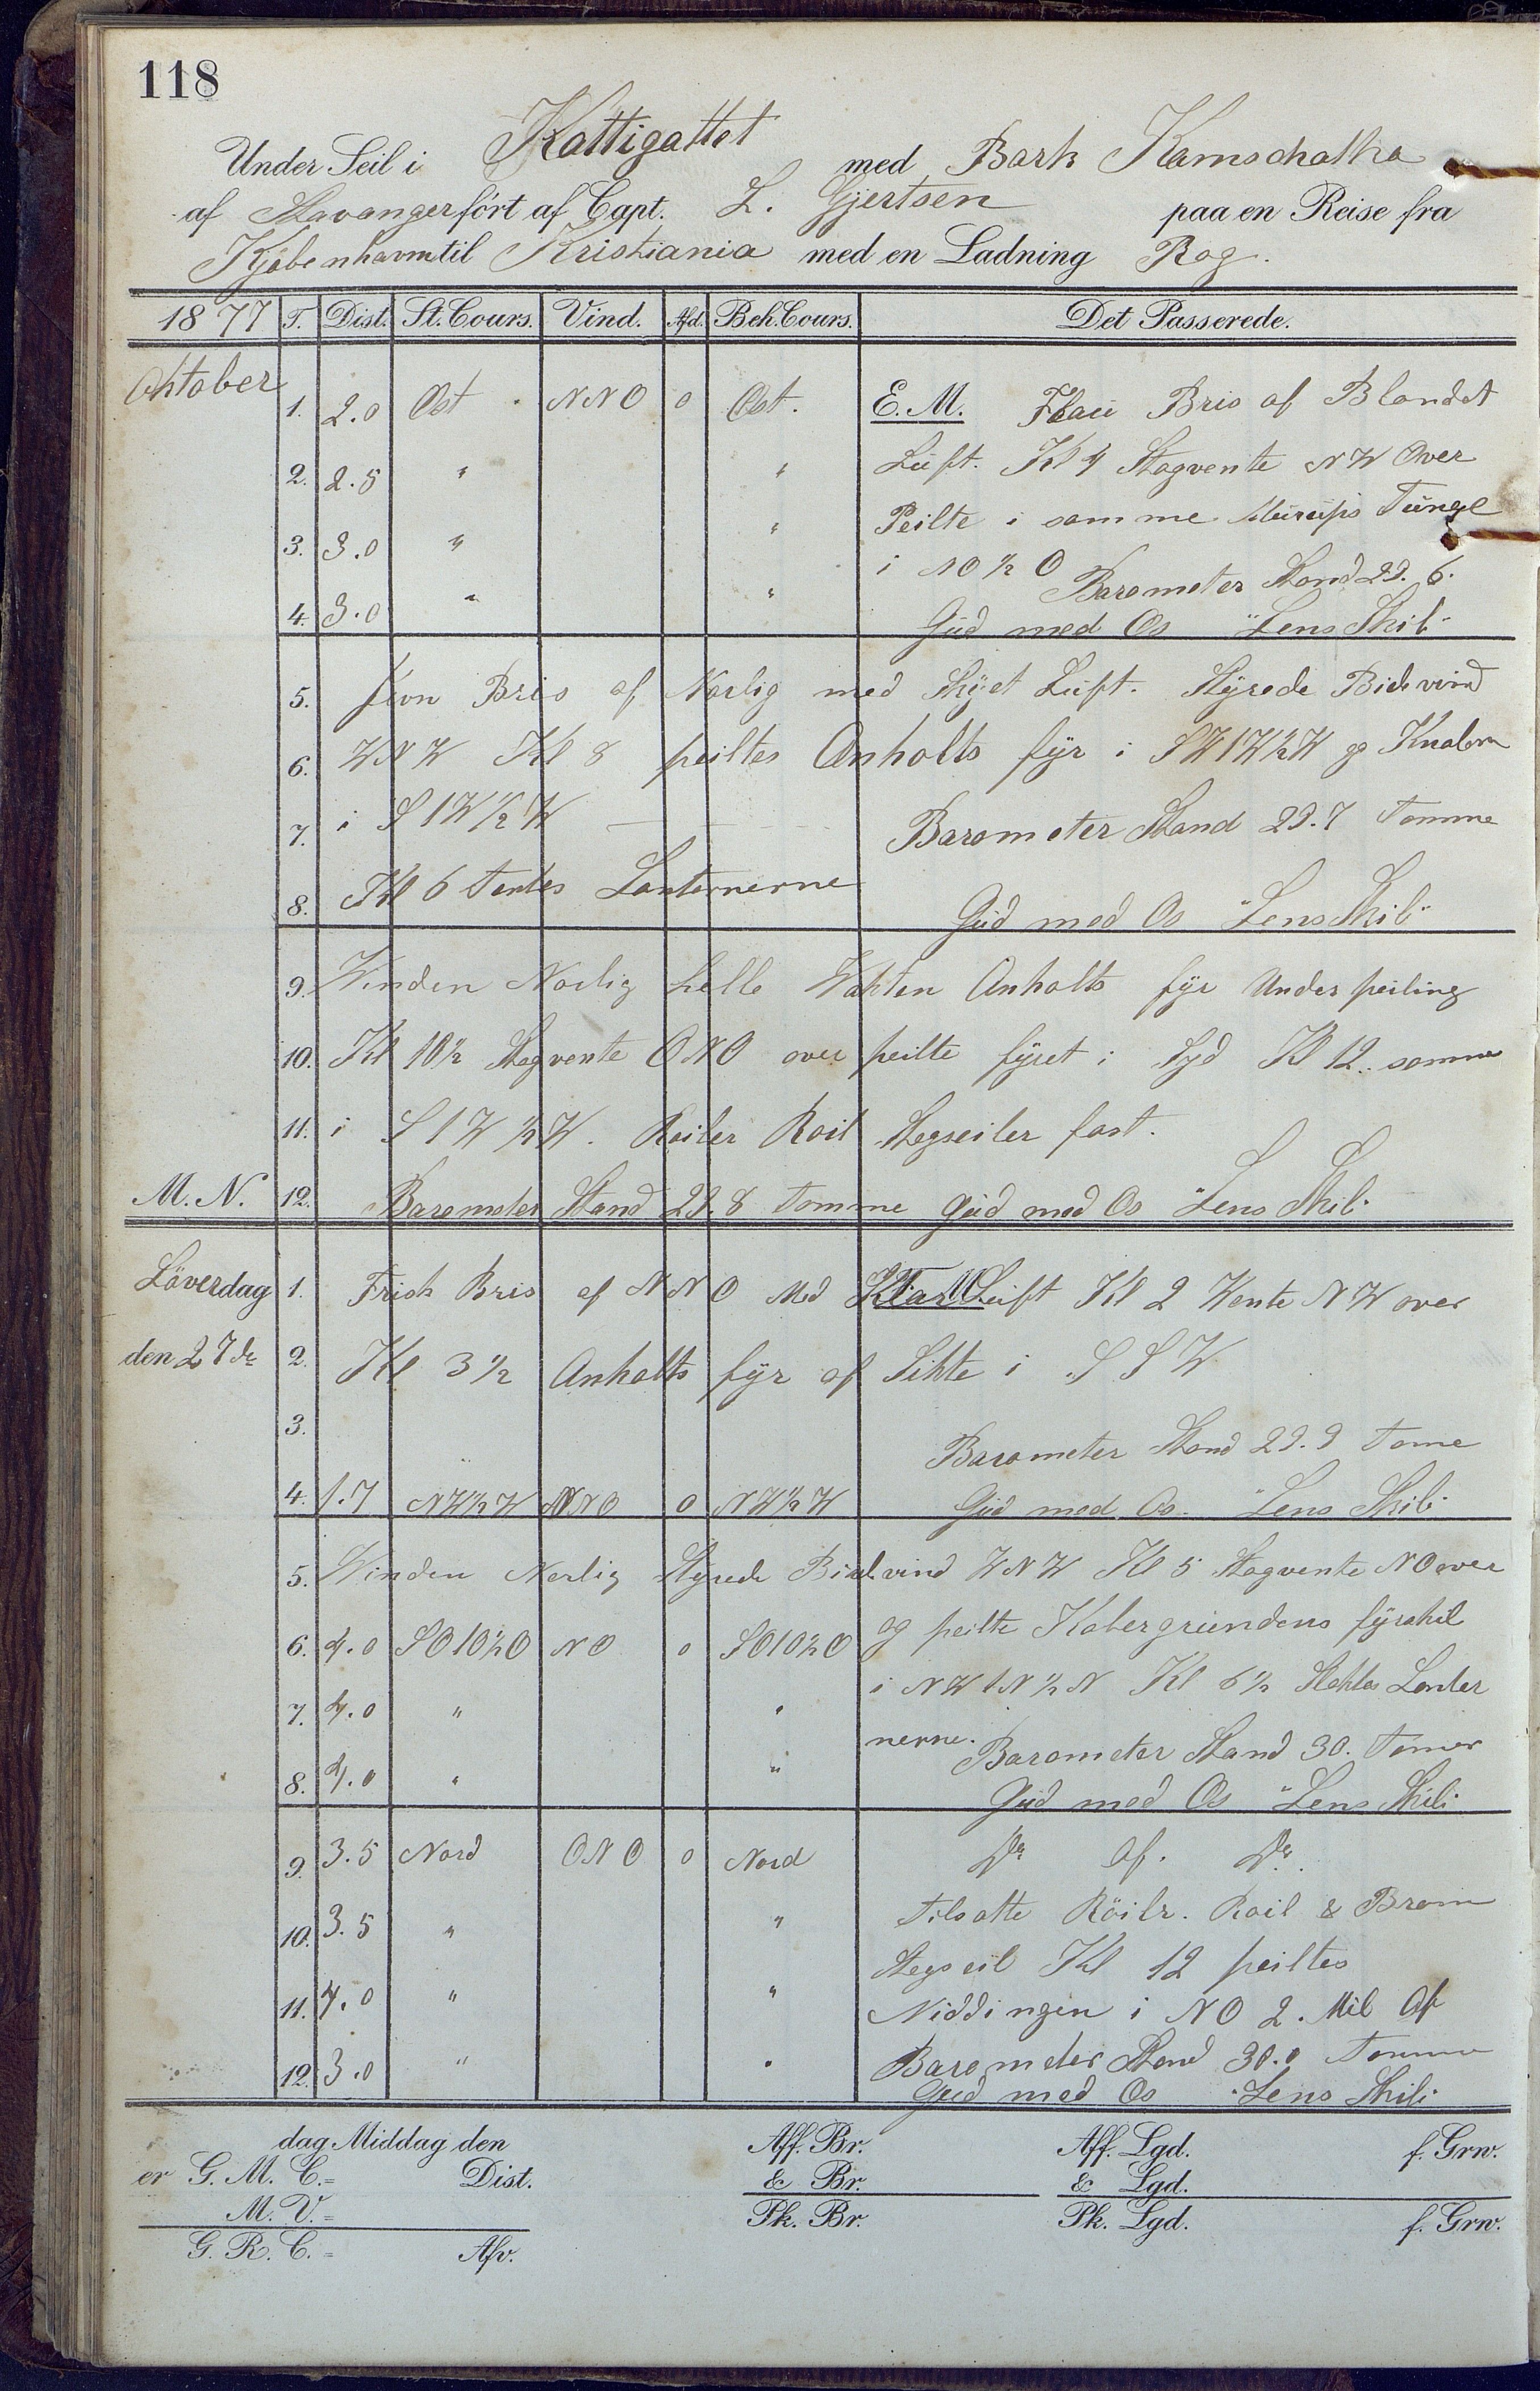 118
Under Seil i Kattigattet med Bark Kamschatka
af Stavanger fört af Capt. L. Gjertsen paa en Reise fra
Kjöbenhavn til Kristiania med en Ladning Rog.
1877 T. Dist. St. Cours. Vind. Afd. Beh. Cours. Det Passerede.
Oktober 1. 2.0 Ost NNO 0 Ost. E. M. Flau Bris af Blandet
2. 2.5 " " Luft. Kl 4 Stagvente NW Over
3. 3.0 " " Peilte i samme Murups Tunge
i NO ½ O Barometer Stand 29. 6.
4. 3.0 " " Gud med Os "Lens Skib"
5. Jevn Bris af Norlig med Skyet Luft. Styrede Bidevind
6. WNW Kl 8 peiltes Anholts fyr i SW1W½W og Knoben
7. i S1W½W Barometer Stand 29.7 Tomme
8. Kl 6 Tentes Lanternerne Gud med Os "Lens Skib"
9. Winden Norlig Helle Wakten Anholts fyr Under peiling
10. Kl 10½ Stagvente ONO over peilte fyret i Syd Kl 12. samme
11. i S1W½W. Roiler Roil Stegseiler fast.
M. N. 12. Barometer Stand 29.8 Tomme Gud med Os "Lens Skib"
Löverdag 1. Frisk Bris af NNO Med Klar Luft Kl 2 Wente NW over
den 27de 2. Kl 3½ Anholts fyr af Sikte i SSW
3. Barometer Stand 29.9 Tome
4. 1.7 NW½W NNO 0 NW½W Gud med Os. "Lens Skib"
5. Winden Norlig Styrede Bidevind WNW Kl 5 Stagvente NO over
6. 4.0 SO1O½O NO 0 SO1O½O og peilte Kobergrundens fyrskib
7. 4.0 " " i NW1N½N Kl 6½ Slektes Lanter
nerne. Barometer Stand 30. Tomer
8. 4.0 " " Gud med Os "Lens Skib"
9. 3.5 Nord ONO 0 Nord Do Af. Do.
10. 3.5 " " Tilsatte Röilr. Roil & Bram
11. 4.0 " " Stegseil Kl 12 peiltes
Niddingen i NO 2. Mil Af
12. 3.0 " " Barometer Stand 30.0 Tomme
Gud med Os "Lens Skib"
dag Middag den Aff. Br. Aff. Lgd. f. Grw.
er G. M. C.= Dist. & Br. & Lgd.
M. V.= Pk. Br. Pk. Lgd. f. Grw.
G. R. C.= Afv.